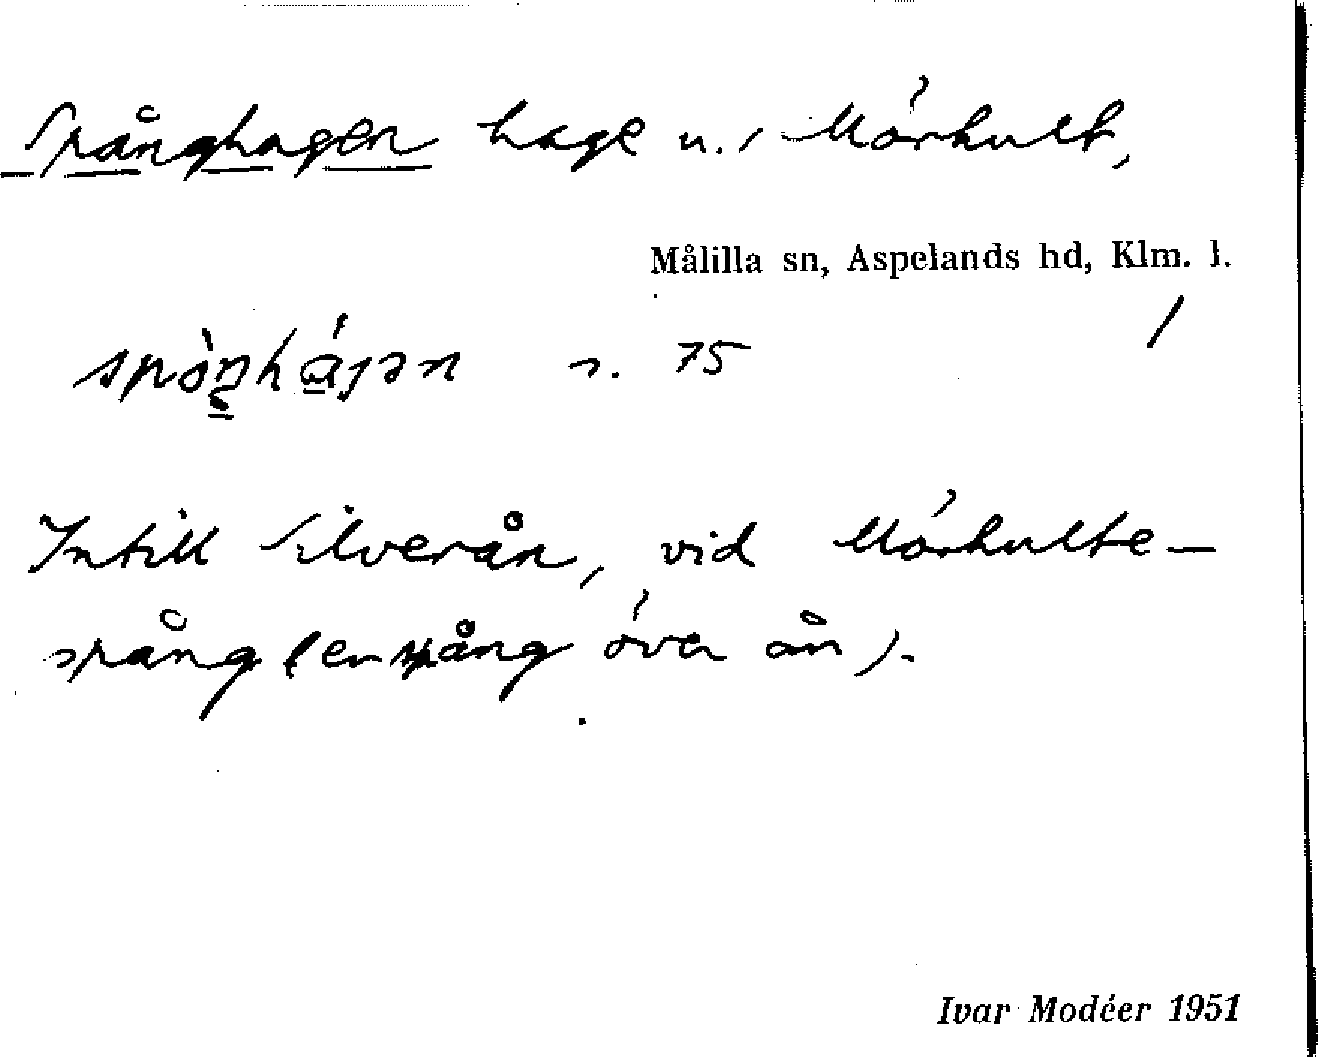 Spånghagen hage u. Mörhult,
Målilla sn, Aspelands hd, Klm. l.
spòŋhájən n. 75 /
Intill Silverån, vid Mörhulte-
spång (en spång över ån).
Ivar Modéer 1951